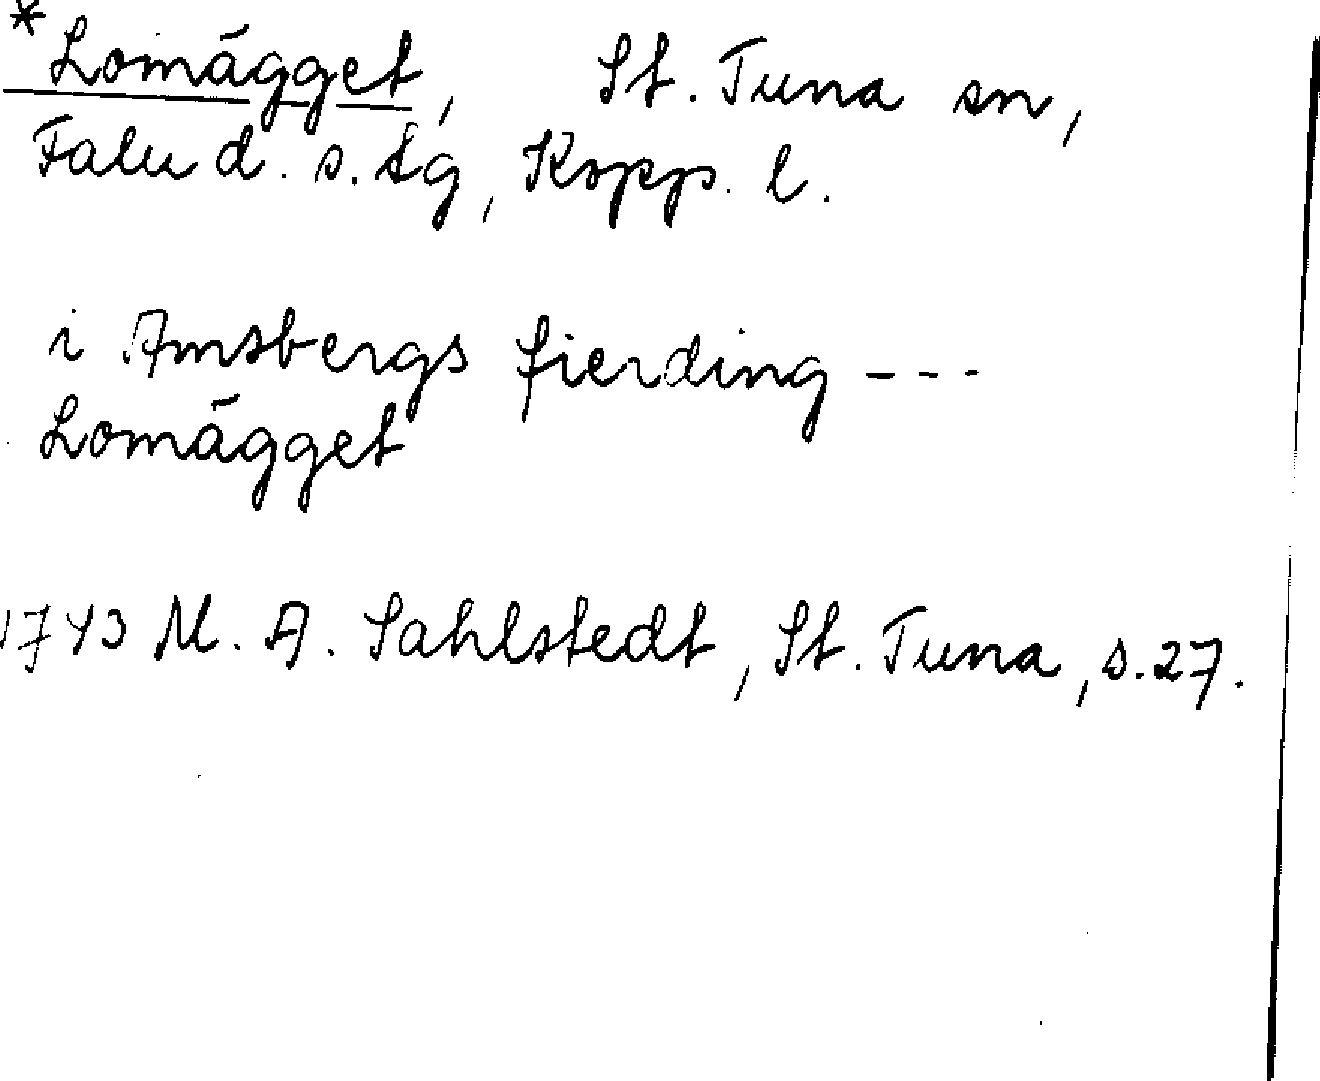 *Lomägget, St. Tuna sn,
Falu d. s. tg, Kopp. l.
i Amsbergs fierding ---
Lomägget
1743 M. A. Sahlstedt, St. Tuna, s. 27.